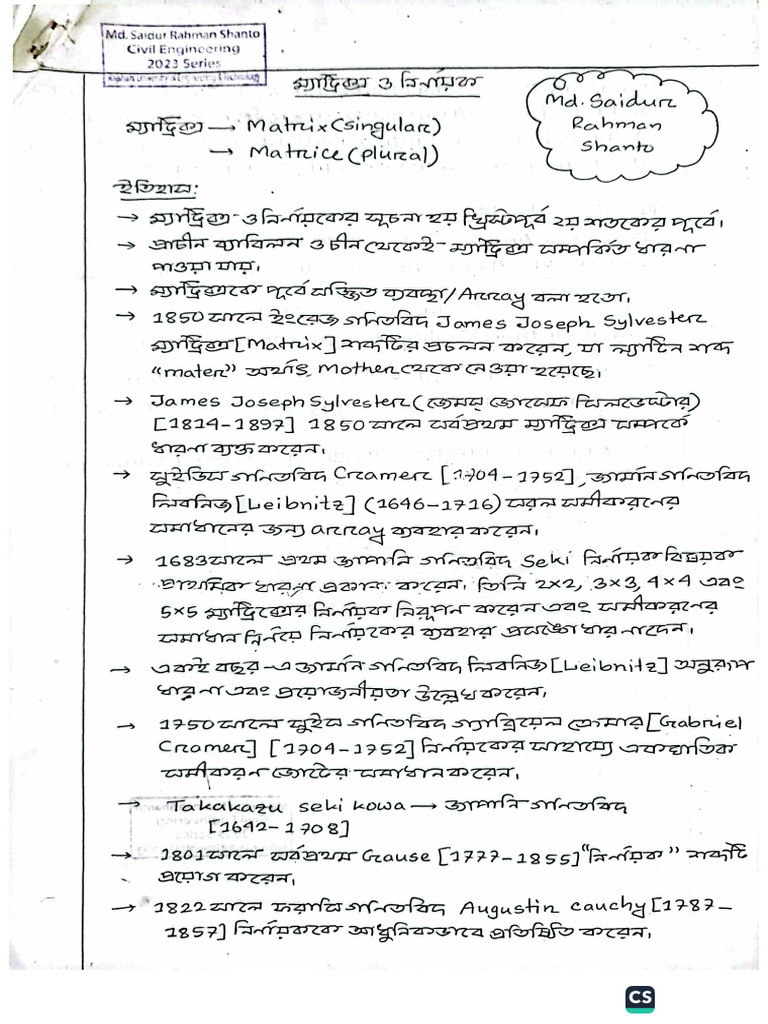 Md. Saidur Rahman Shanto
Civil Engineering
2023 Series
Rajshahi University of Engineering & Technology
ম্যাট্রিক্স ও নির্ণায়ক
Md. Saidur
Rahman
Shanto
ম্যাট্রিক্স → Matrix (singular)
→ Matrice (plural)
ইতিহাস:
→ ম্যাট্রিক্স ও নির্ণায়কের সূচনা হয় খ্রিস্টপূর্ব ২য় শতকের পূর্বে।
→ প্রাচীন ব্যাবিলন ও চীন থেকেই ম্যাট্রিক্স সম্পর্কিত ধারনা
পাওয়া যায়।
→ ম্যাট্রিক্সকে পূর্বে সজ্জিত ব্যবস্থা/Array বলা হতো।
→ 1850 সালে ইংরেজ গনিতবিদ James Joseph Sylvester
ম্যাট্রিক্স [Matrix] শব্দটির প্রচলন করেন, যা ল্যাটিন শব্দ
"mater" অর্থাৎ Mother থেকে নেওয়া হয়েছে।
→ James Joseph Sylvester (জেমস জোসেফ সিলভেস্টার)
[1814-1897] 1850 সালে সর্বপ্রথম ম্যাট্রিক্স সম্পর্কে
ধারনা ব্যক্ত করেন।
→ সুইডিস গনিতবিদ Cramer [1704-1752], জার্মান গনিতবিদ
লিবনিজ [Leibnitz] (1646-1716) সরল সমীকরনের
সমাধানের জন্য array ব্যবহার করেন।
→ 1683 সালে প্রথম জাপানি গনিতবিদ Seki নির্নায়ক বিষয়ক
প্রাথমিক ধারনা প্রকাশ করেন। তিনি 2×2, 3×3, 4×4 এবং
5×5 ম্যাট্রিক্সের নির্নায়ক নিরূপন করেন এবং সমীকরনের
সমাধান নির্নয়ে নির্নায়কের ব্যবহার প্রসঙ্গে ধারনা দেন।
→ একই বছর-এ জার্মান গনিতবিদ লিবনিজ [Leibnitz] অনুরূপ
ধারনা এবং প্রয়োজনীয়তা উল্লেখ করেন।
→ 1750 সালে সুইস গনিতবিদ গ্যাব্রিয়েল ক্রেমার [Gabriel
Cramer] [1704-1752] নির্নায়কের সাহায্যে একঘাতিক
সমীকরন জোটের সমাধান করেন।
→ Takakazu seki kowa → জাপানি গনিতবিদ
[1642-1708]
→ 1801 সালে সর্বপ্রথম Gause [1777-1855] "নির্নায়ক" শব্দটি
প্রয়োগ করেন।
→ 1822 সালে ফরাসি গনিতবিদ Augustin cauchy [1787-
1857] নির্নায়ককে আধুনিকভাবে প্রতিষ্ঠিত করেন।
CS